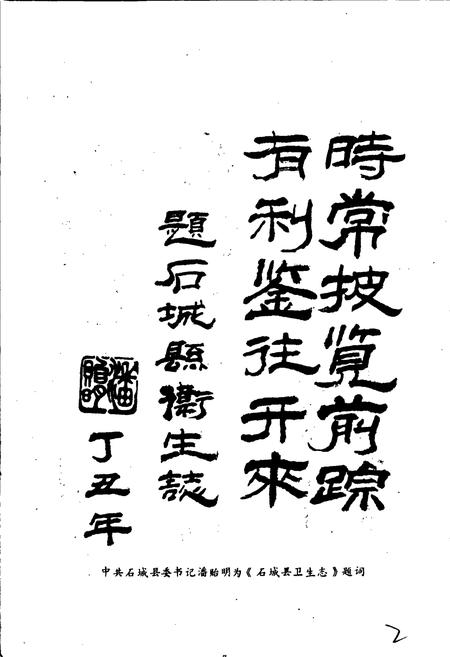 時常披覽前踪
有利鉴往开來
題石城縣衞生誌
丁丑年
潘貽明
中共石城县委书记潘贻明为《石城县卫生志》题词
2